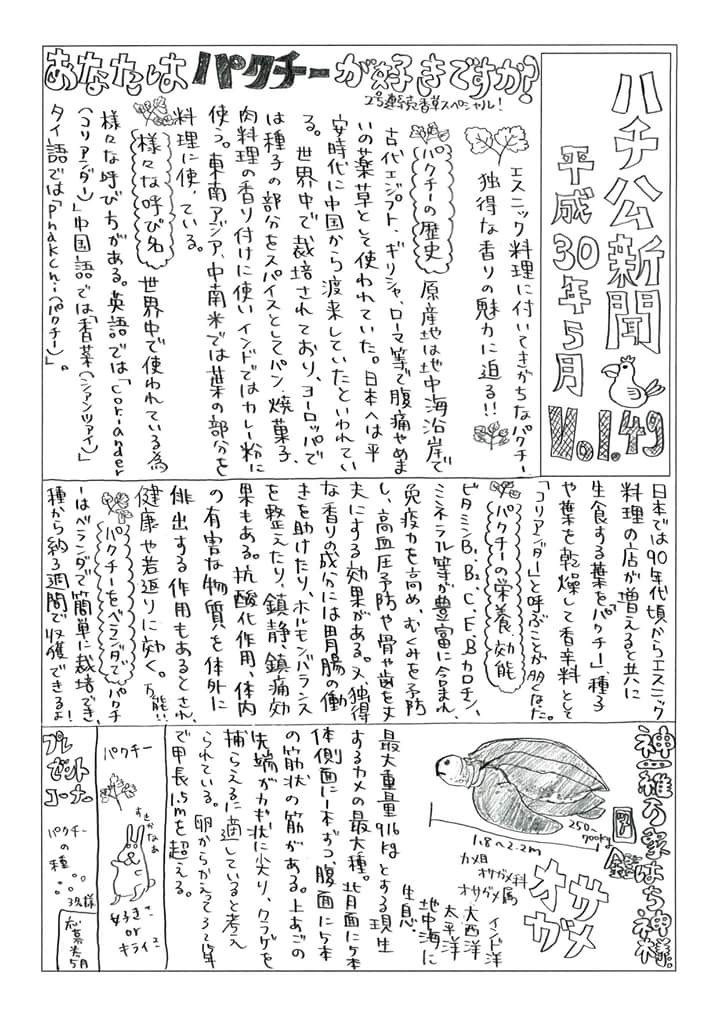 ハチ公新聞
平成30年5月
Vol.49
あなたはパクチーが好きですか?
2号連続香草スペシャル!
エスニック料理に付いてきがちなパクチー、
独得な香りの魅力に迫る!!
パクチーの歴史 原産地は地中海沿岸で
古代エジプト、ギリシャ、ローマ等で腹痛やめま
いの薬草として使われていた。日本へは平
安時代に中国から渡来していたといわれてい
る。世界中で栽培されており、ヨーロッパで
は種子の部分をスパイスとしてパン、焼菓子、
肉料理の香り付けに使いインドではカレー粉に
使う。東南アジア、中南米では葉の部分を
料理に使っている。
様々な呼び名 世界中で使われている為
様々な呼び方がある。英語では「coriander
(コリアンダー)」中国語では「香菜(シアンツァイ)」
タイ語では「Phakchi(パクチー)」。
日本では90年代頃からエスニック
料理の店が増えると共に
生食する葉を「パクチー」、種子
や葉を乾燥して香辛料として
「コリアンダー」と呼ぶことが多くなった。
パクチーの栄養、効能
ビタミンB₁、B₂、C、E、Bカロチン、
ミネラル等が豊富に含まれ、
免疫力を高め、むくみを予防
し、高血圧予防や骨や歯を丈
夫にする効果がある。又、独得
な香りの成分には胃腸の働
きを助けたり、ホルモンバランス
を整えたり、鎮静、鎮痛効
果もある。抗酸化作用、体内
の有害な物質を体外に
俳出する作用もあるとされ、
健康や若返りに効く。万能!!
パクチーをベランダで パクチ
ーはベランダで簡単に栽培でき、
種から約3週間で収穫できるよ!
神一雅の家
図鑑はち神様
オサガメ
250~700kg
1.8~2.2m
カメ目
オサガメ科
オサガメ属
インド洋
大西洋
太平洋
地中海に
生息
最大重量916kgとする現生
するカメの最大種。背面に5本
体側面に1本ずつ、腹面に5本
の筋状の筋がある。上あごの
先端がカギ状に尖り、クラゲを
捕らえるに適していると考え
られている。卵からかえって3~5年
で甲長1.5mを超える。
パクチー
すきかなあ
好き?
or
キライ?
プレゼントコーナー
パクチー
の種
3名様
応募〆5月